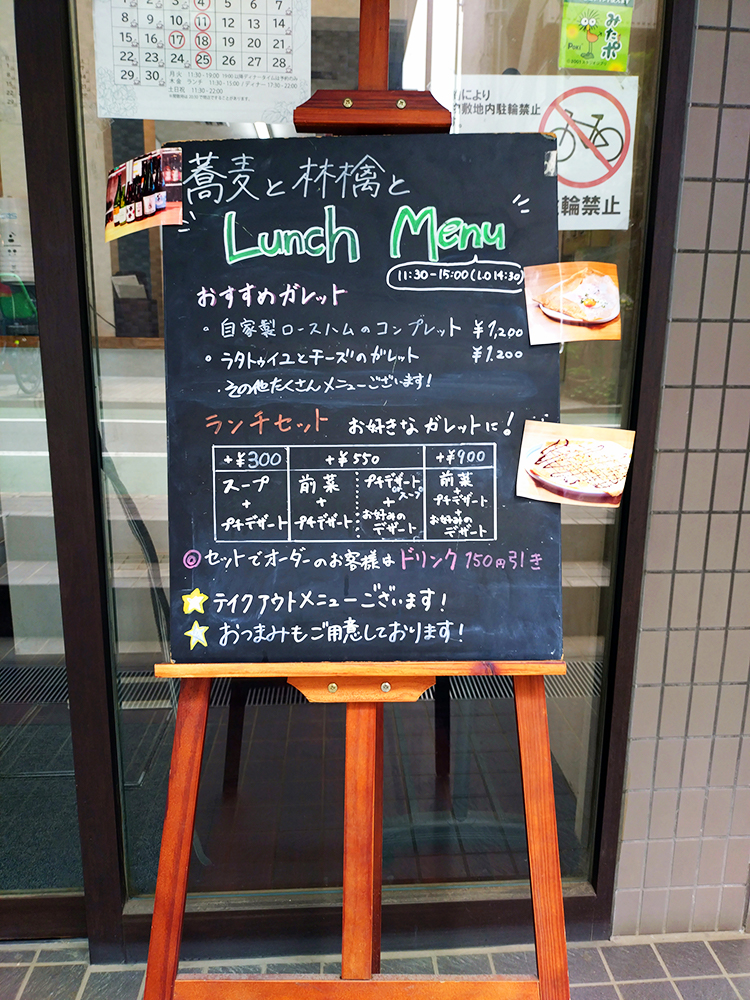 1 2 3 4 5 6 7
8 9 10 11 12 13 14
15 16 17 18 19 20 21
22 23 24 25 26 27 28
29 30 31
月火 11:30-19:00
木金 ランチ 11:30-15:00 / ディナー 17:30-22:00
土日祝 11:30-22:00
みたポ
Poki
により
敷地内駐輪禁止
輪禁止
蕎麦と林檎と
Lunch Menu
11:30-15:00(L.O 14:30)
おすすめガレット
。自家製ロースハムのコンプレット ¥1,200
。ラタトゥイユとチーズのガレット ¥1.200
・その他たくさんメニューございます!
ランチセット お好きなガレットに!
+¥300 +¥550 +¥900
スープ + プチデザート
前菜 + プチデザート
プチデザート or スープ + お好みのデザート
前菜 + プチデザート + お好みのデザート
◎セットでオーダーのお客様はドリンク150円引き
★テイクアウトメニューございます!
★おつまみもご用意しております!